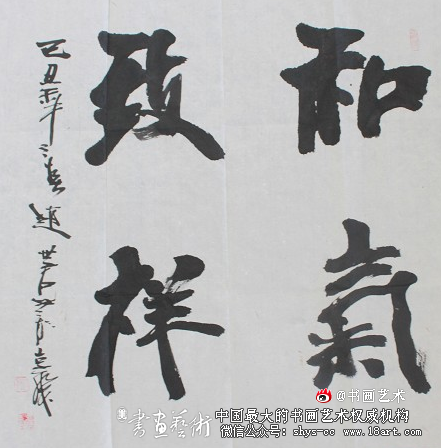 和氣
致祥
己丑年之春 趙
書畫藝術
@书画艺术
中国最大的书画艺术权威机构
微信公众号：shys-cc www.18art.com